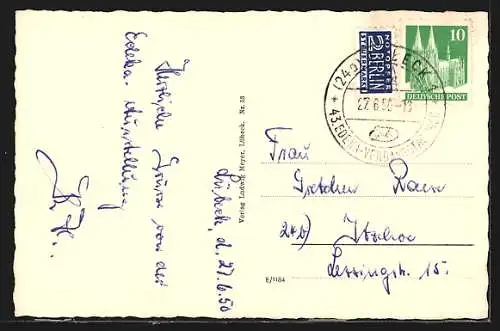 Herzliche Grüße von der
Edeka-Ausstellung
Lübeck, d. 27.6.50
Verlag Ludwig Meyer, Lübeck. Nr. 38
NOTOPFER
2 BERLIN
STEUERMARKE
10
DEUTSCHE POST
(24a) LÜBECK
27.6.50
43. EDEKA-VERBANDSTAG
Frau
Gretchen
24b) Itzehoe
Lessingstr. 15.
E/1184